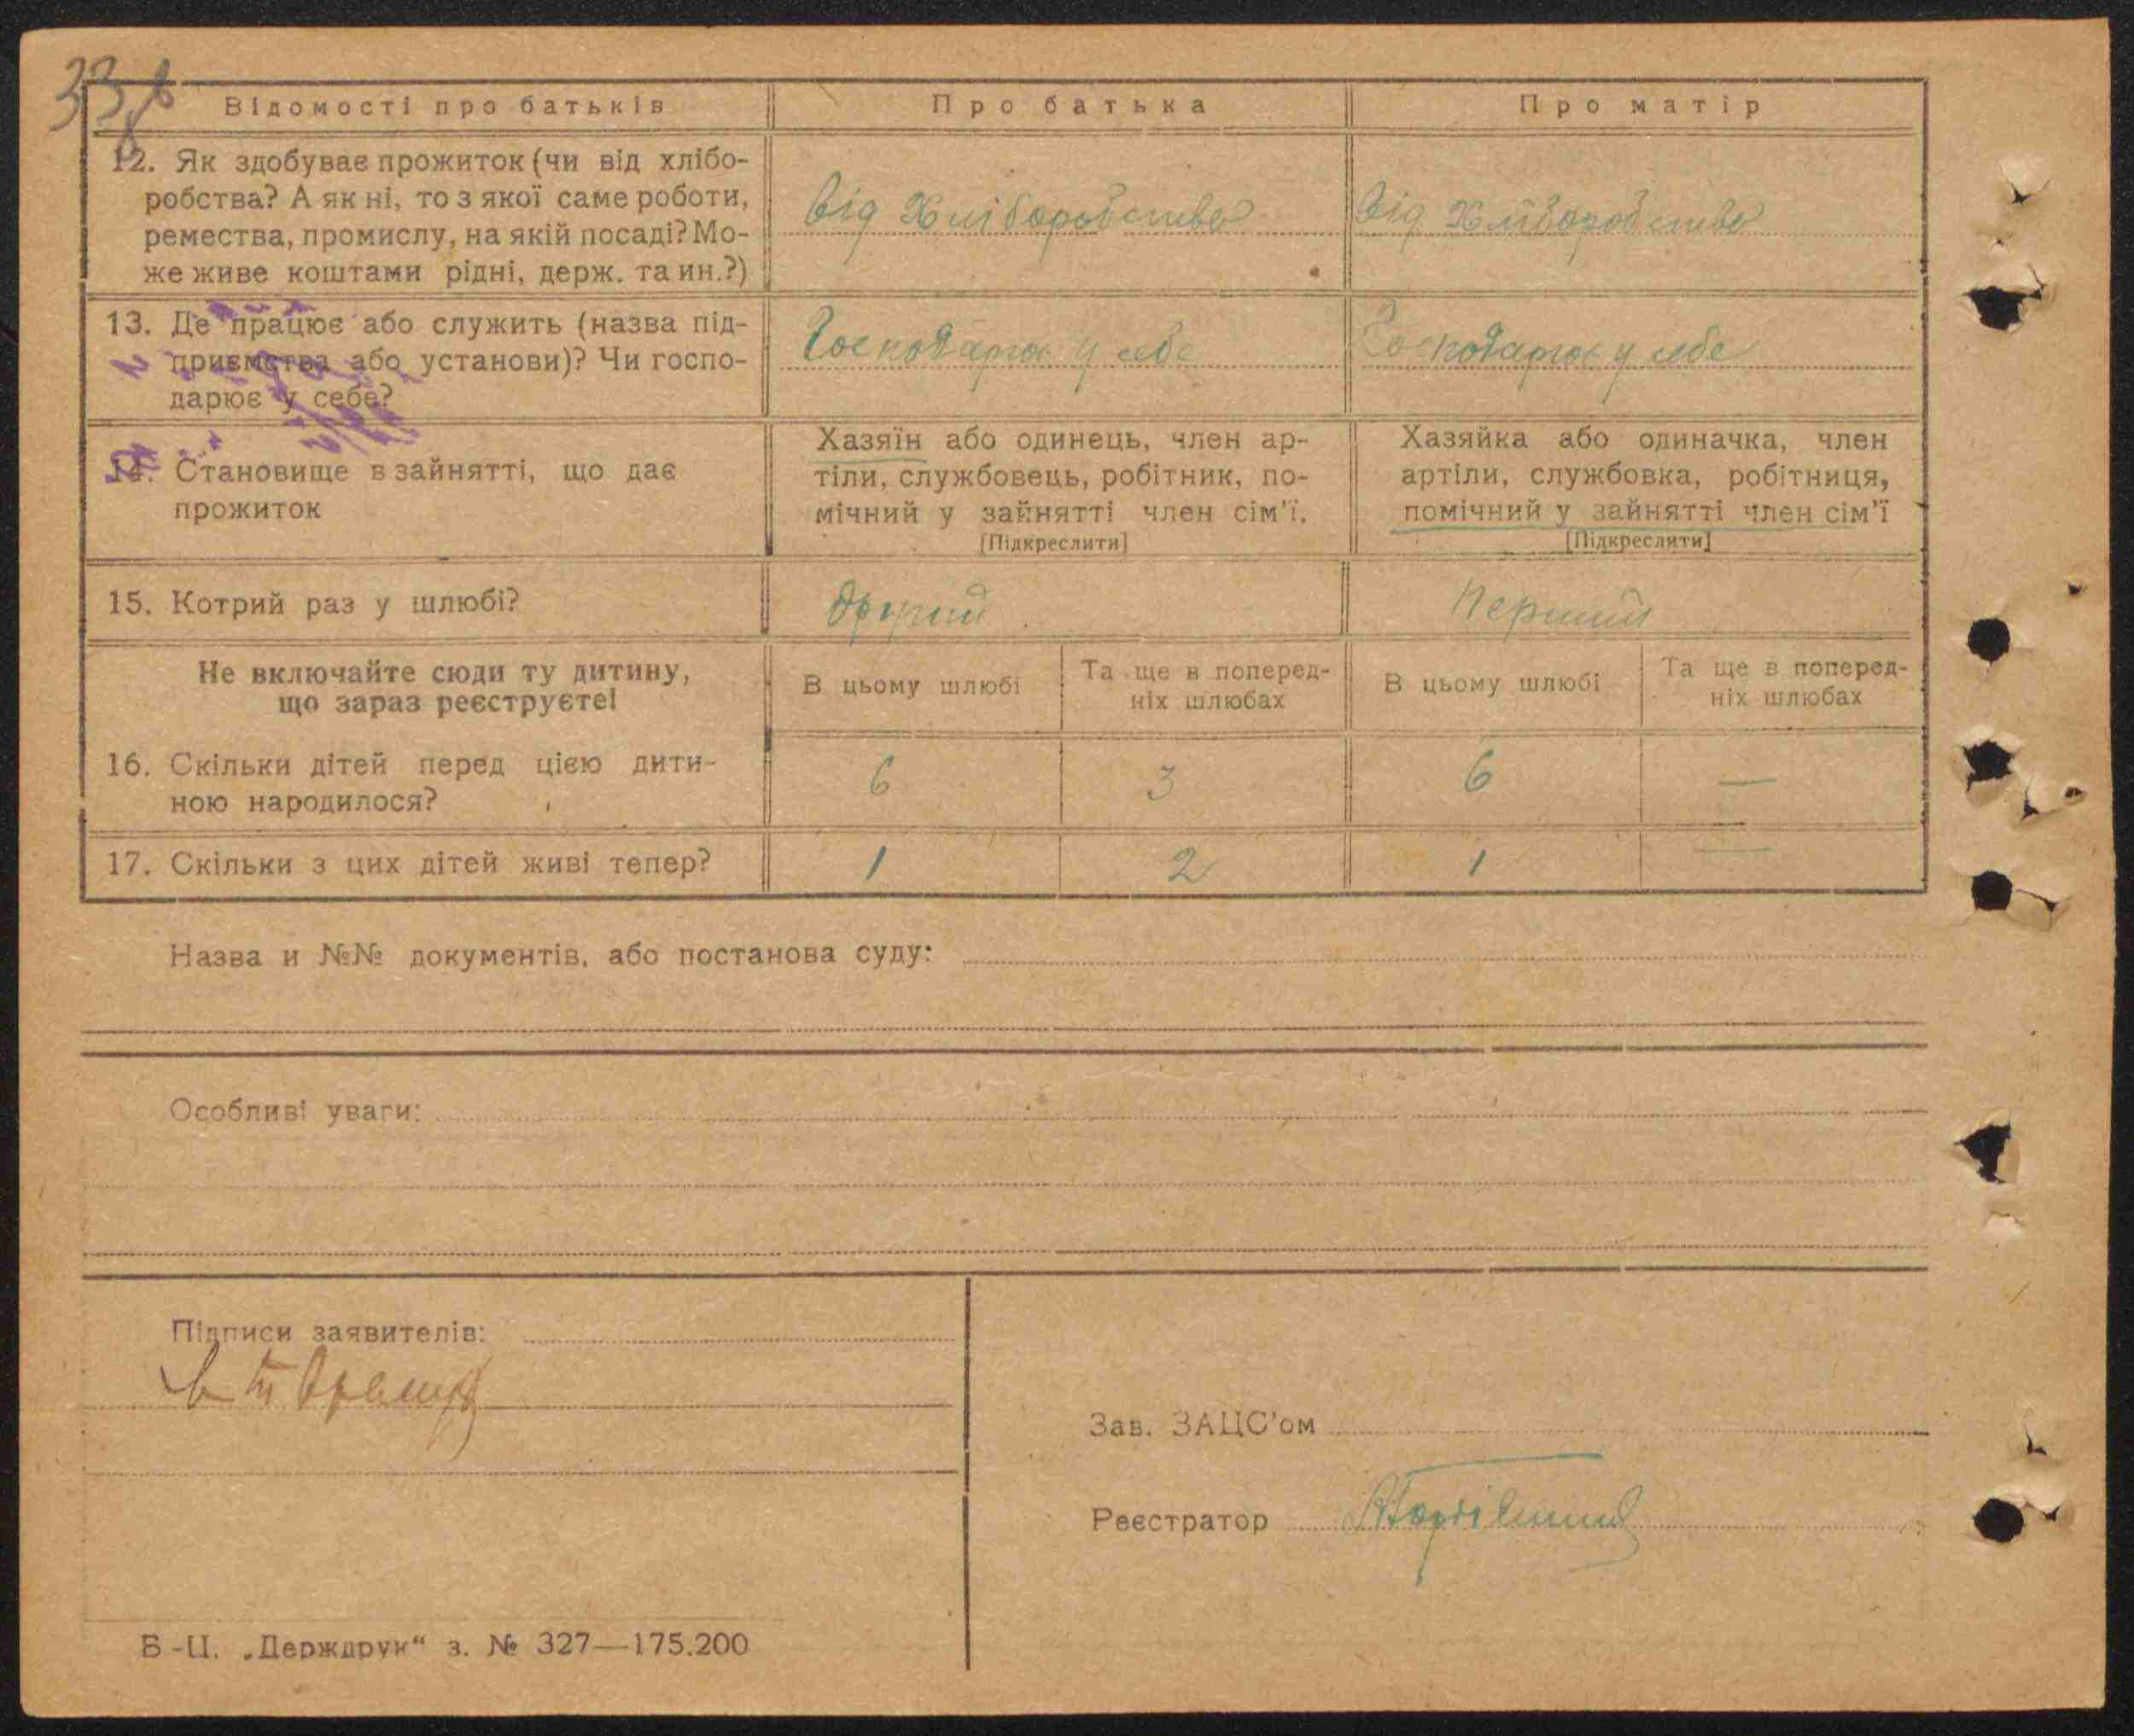 33
Відомості про батьків
Про батька
Про матір
12. Як здобуває прожиток (чи від хлібо-
робства? А як ні, то з якої саме роботи,
ремества, промислу, на якій посаді? Мо-
же живе коштами рідні, держ. та ин.?)
від Хліборобства
від Хліборобства
13. Де працює або служить (назва під-
приємства або установи)? Чи госпо-
дарює у себе?
Господарює у себе
Господарює у себе
14. Становище в зайнятті, що дає
прожиток
Хазяїн або одинець, член ар-
тіли, службовець, робітник, по-
мічний у зайнятті член сім'ї.
[Підкреслити]
Хазяйка або одиначка, член
артіли, службовка, робітниця,
помічний у зайнятті член сім'ї
[Підкреслити]
15. Котрий раз у шлюбі?
другий
Перший
Не включайте сюди ту дитину,
що зараз реєструєте!
В цьому шлюбі
Та ще в поперед-
ніх шлюбах
В цьому шлюбі
Та ще в поперед-
ніх шлюбах
16. Скільки дітей перед цією дити-
ною народилося?
6
3
6
—
17. Скільки з цих дітей живі тепер?
1
2
1
—
Назва и №№ документів, або постанова суду:
Особливі уваги:
Підписи заявителів:
Зав. ЗАЦС'ом
Реєстратор
Б-Ц. „Держдрук“ з. № 327—175.200